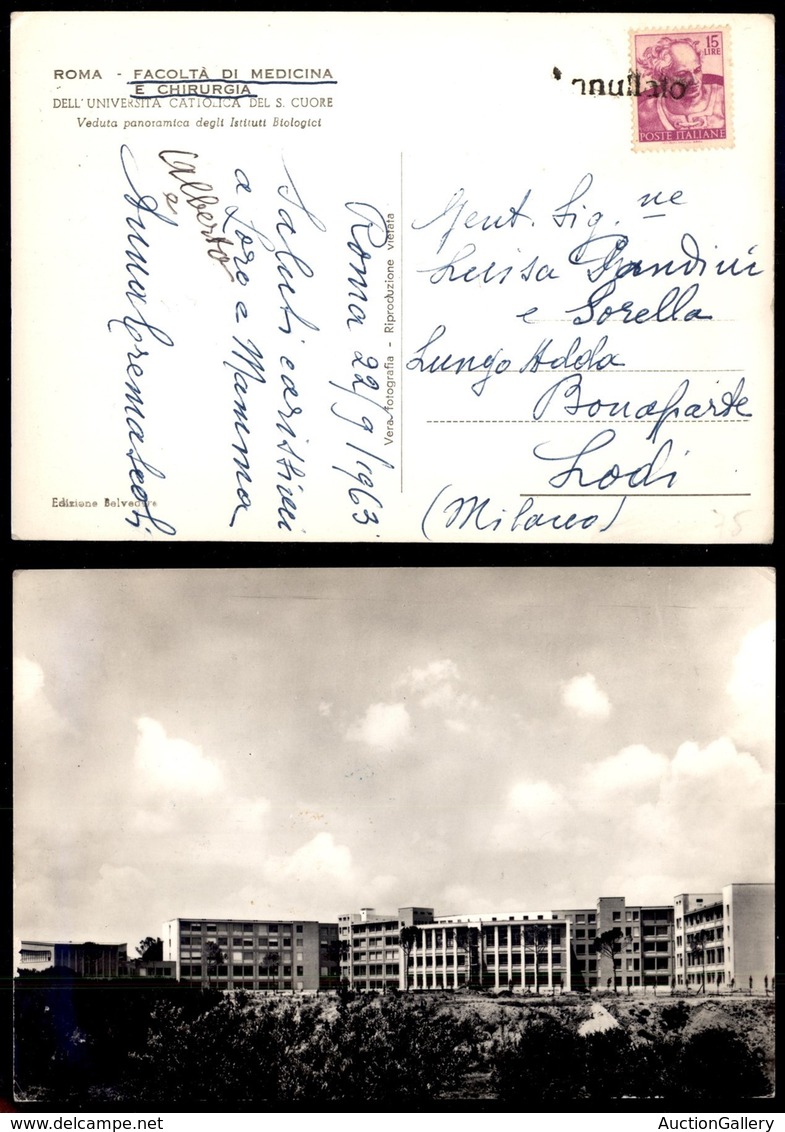 ROMA - FACOLTÀ DI MEDICINA
E CHIRURGIA
DELL'UNIVERSITÀ CATTOLICA DEL S. CUORE
Veduta panoramica degli Istituti Biologici
nnullato
15
LIRE
POSTE ITALIANE
Roma 22/9/1963
Saluti carissimi
a Loro e Mamma
Alberto
e
Anna
Vera fotografia - Riproduzione vietata
Gent. Sig.ne
Luisa Dandini
e Sorella
Lungo Adda
Bonaparte
Lodi
(Milano)
Edizione Belvedere
75
AuctionGallery